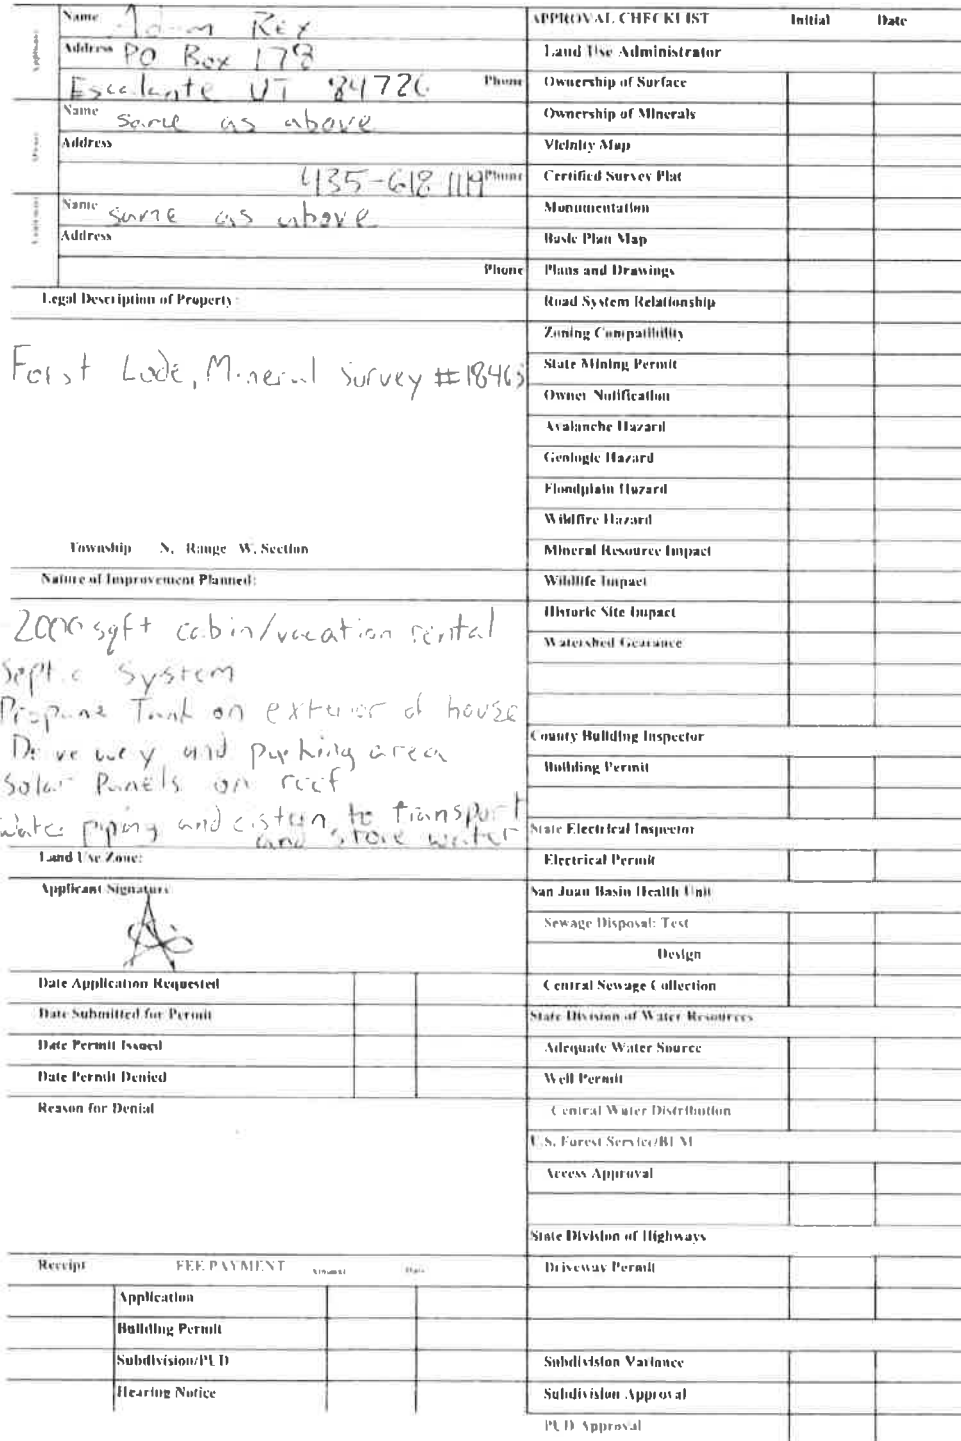 Applicant
Name Adam Rex
Address PO Box 178
Escalante UT 84726 Phone
Owner
Name same as above
Address
435-618-1119 Phone
Contractor
Name same as above
Address
Phone
Legal Description of Property:
Forist Lode, Mineral Survey #18465
Township N, Range W, Section
Nature of Improvement Planned:
2000 sqft cabin/vacation rental
Septic System
Propane Tank on exterior of house
Driveway and parking area
Solar Panels on roof
Water piping and cistern to transport
and store water
Land Use Zone:
Applicant Signature
Date Application Requested
Date Submitted for Permit
Date Permit Issued
Date Permit Denied
Reason for Denial
Receipt FEE PAYMENT Amount Date
Application
Building Permit
Subdivision/PUD
Hearing Notice
APPROVAL CHECKLIST Initial Date
Land Use Administrator
Ownership of Surface
Ownership of Minerals
Vicinity Map
Certified Survey Plat
Monumentation
Basic Plan Map
Plans and Drawings
Road System Relationship
Zoning Compatibility
State Mining Permit
Owner Notification
Avalanche Hazard
Geologic Hazard
Floodplain Hazard
Wildfire Hazard
Mineral Resource Impact
Wildlife Impact
Historic Site Impact
Watershed Gearance
County Building Inspector
Building Permit
State Electrical Inspector
Electrical Permit
San Juan Basin Health Unit
Sewage Disposal: Test
Design
Central Sewage Collection
State Division of Water Resources
Adequate Water Source
Well Permit
Central Water Distribution
U.S. Forest Service/BLM
Access Approval
State Division of Highways
Driveway Permit
Subdivision Variance
Subdivision Approval
PUD Approval